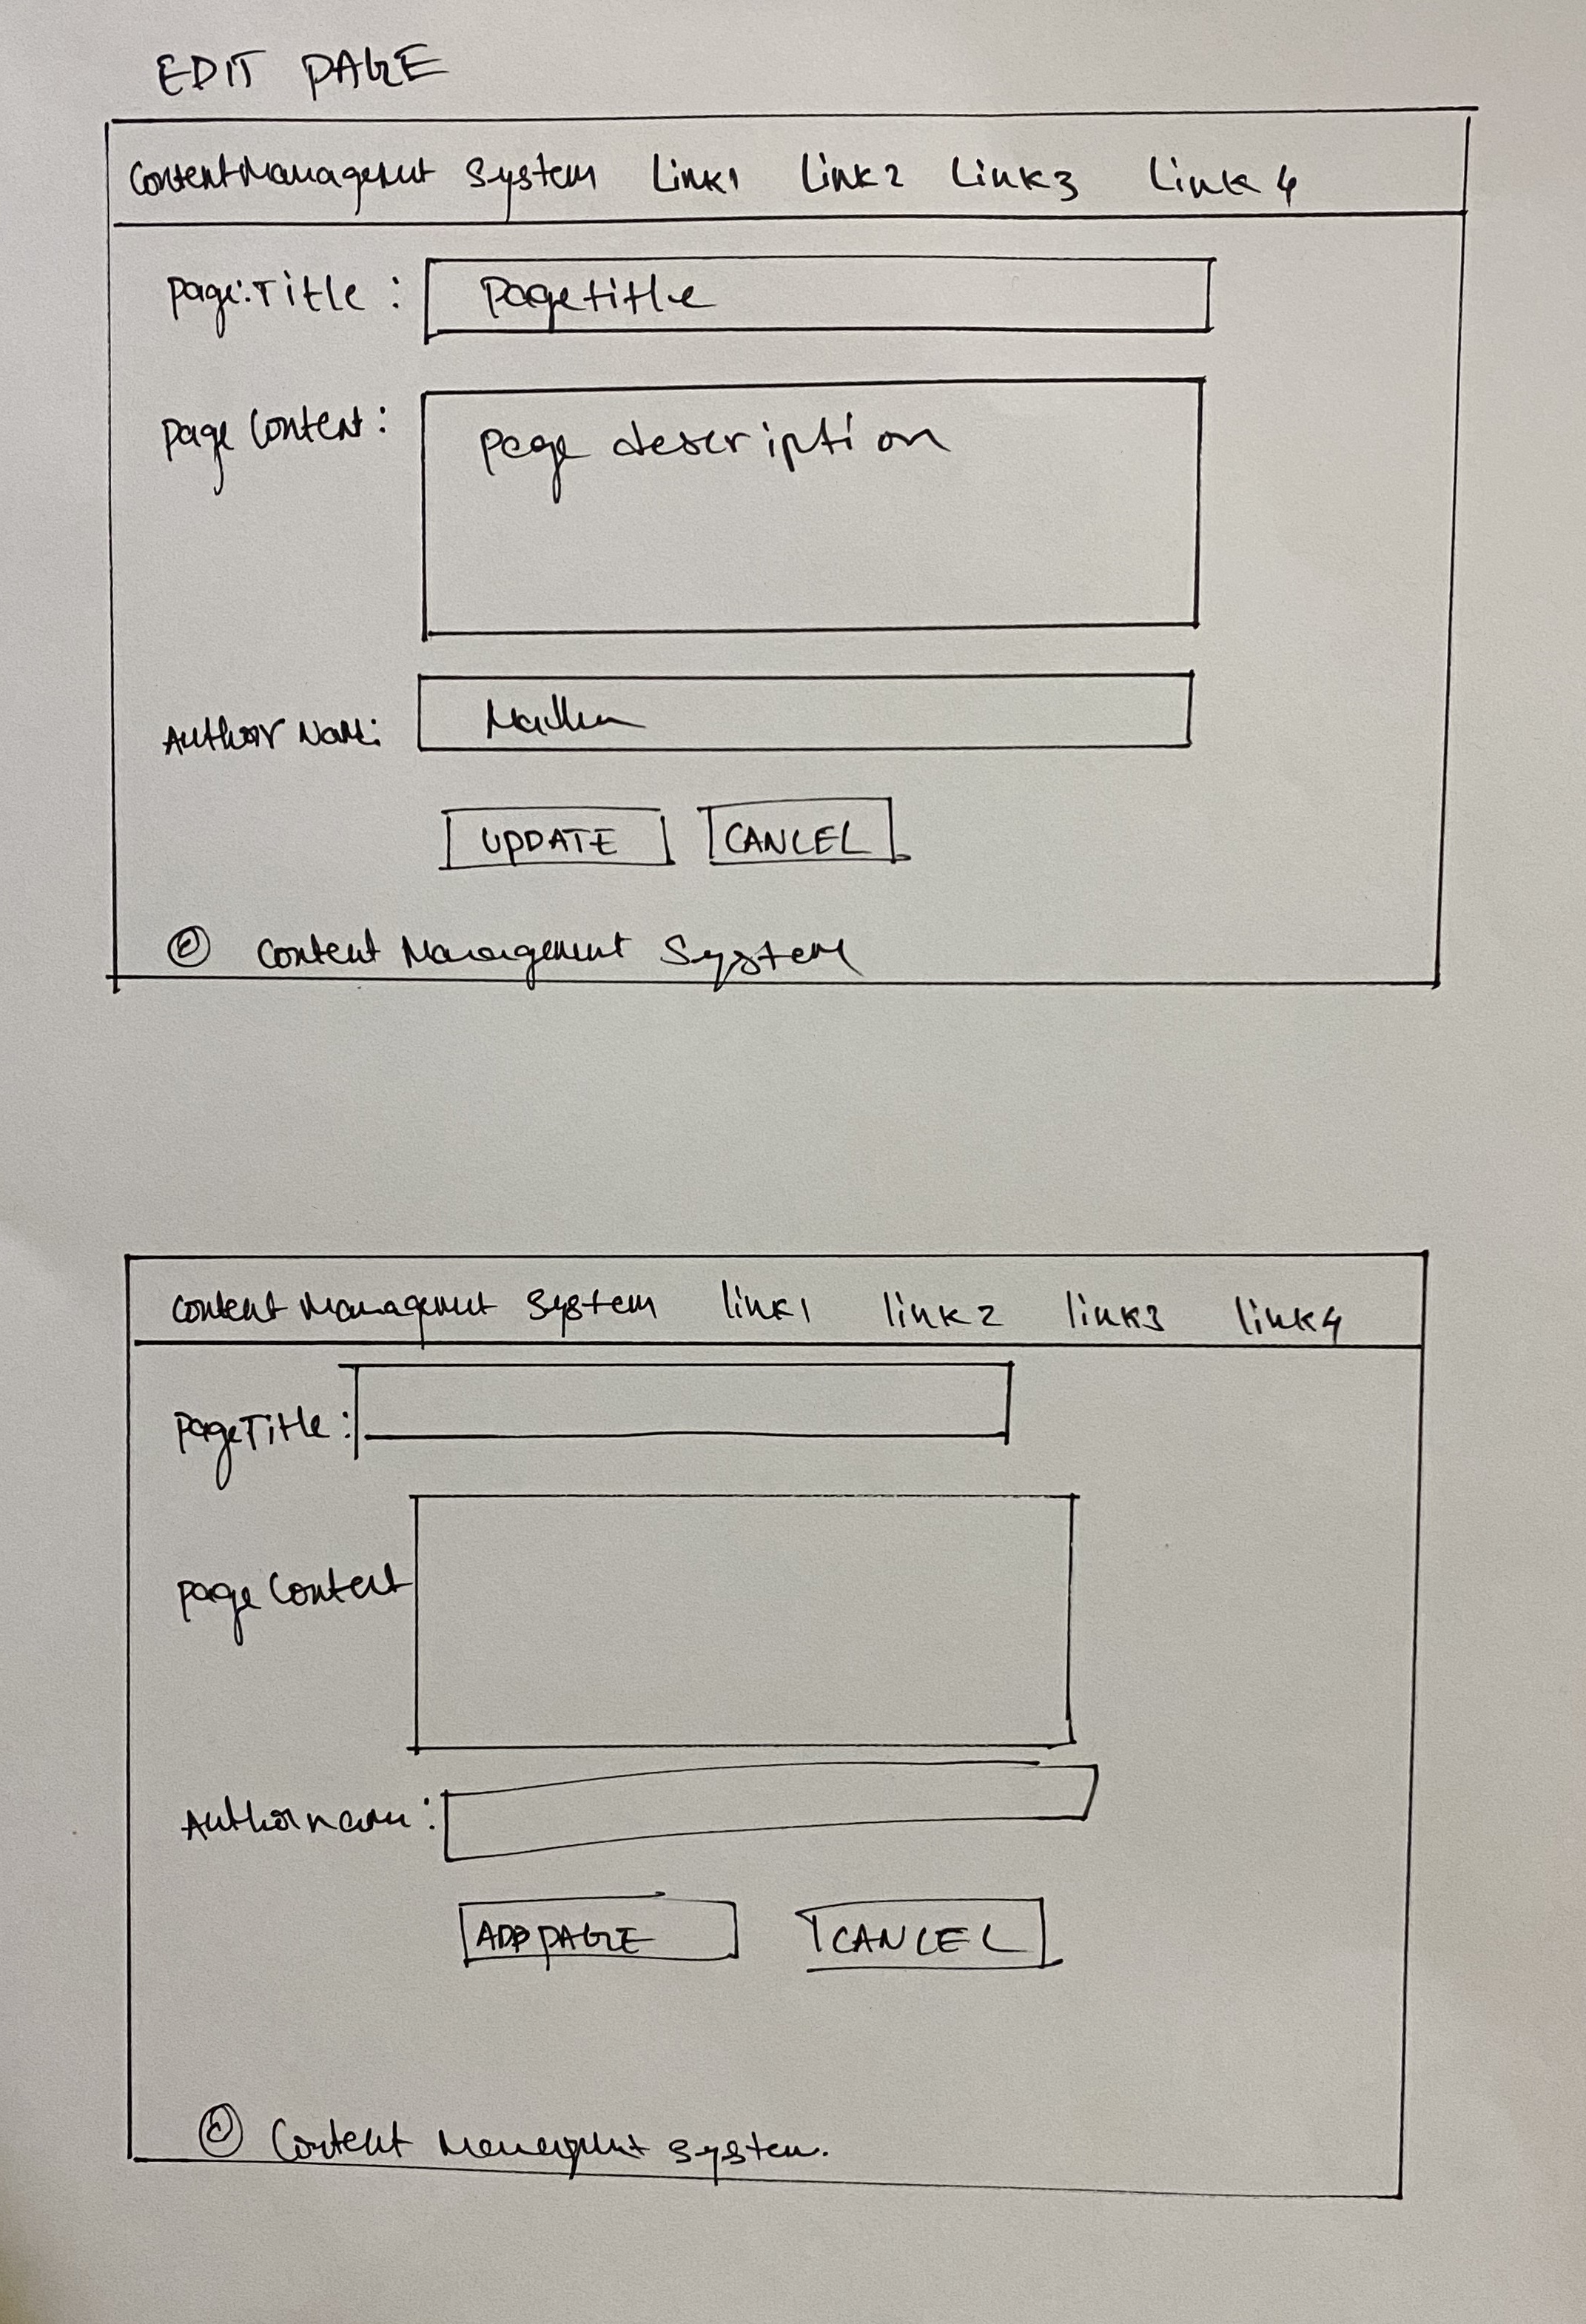 EDIT PAGE
Content Management System Link1 Link2 Link3 Link4
Page Title : Pagetitle
Page Content : page description
Author Name:
UPDATE CANCEL
© Content Management System
Content Management System link1 link2 link3 link4
PageTitle :
page Content
Author name :
ADD PAGE CANCEL
© Content Management system.